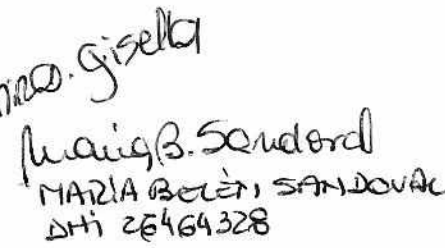 Gisella
Maria B. Sandoval
MARIA BELÉN SANDOVAL
DNI 26464328